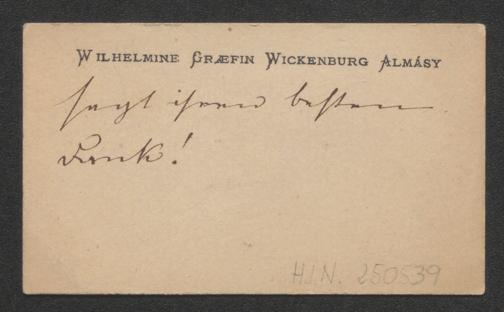 WILHELMINE GRÆFIN WICKENBURG ALMÁSY
sagt ihren besten
Dank!
H.I.N. 250539